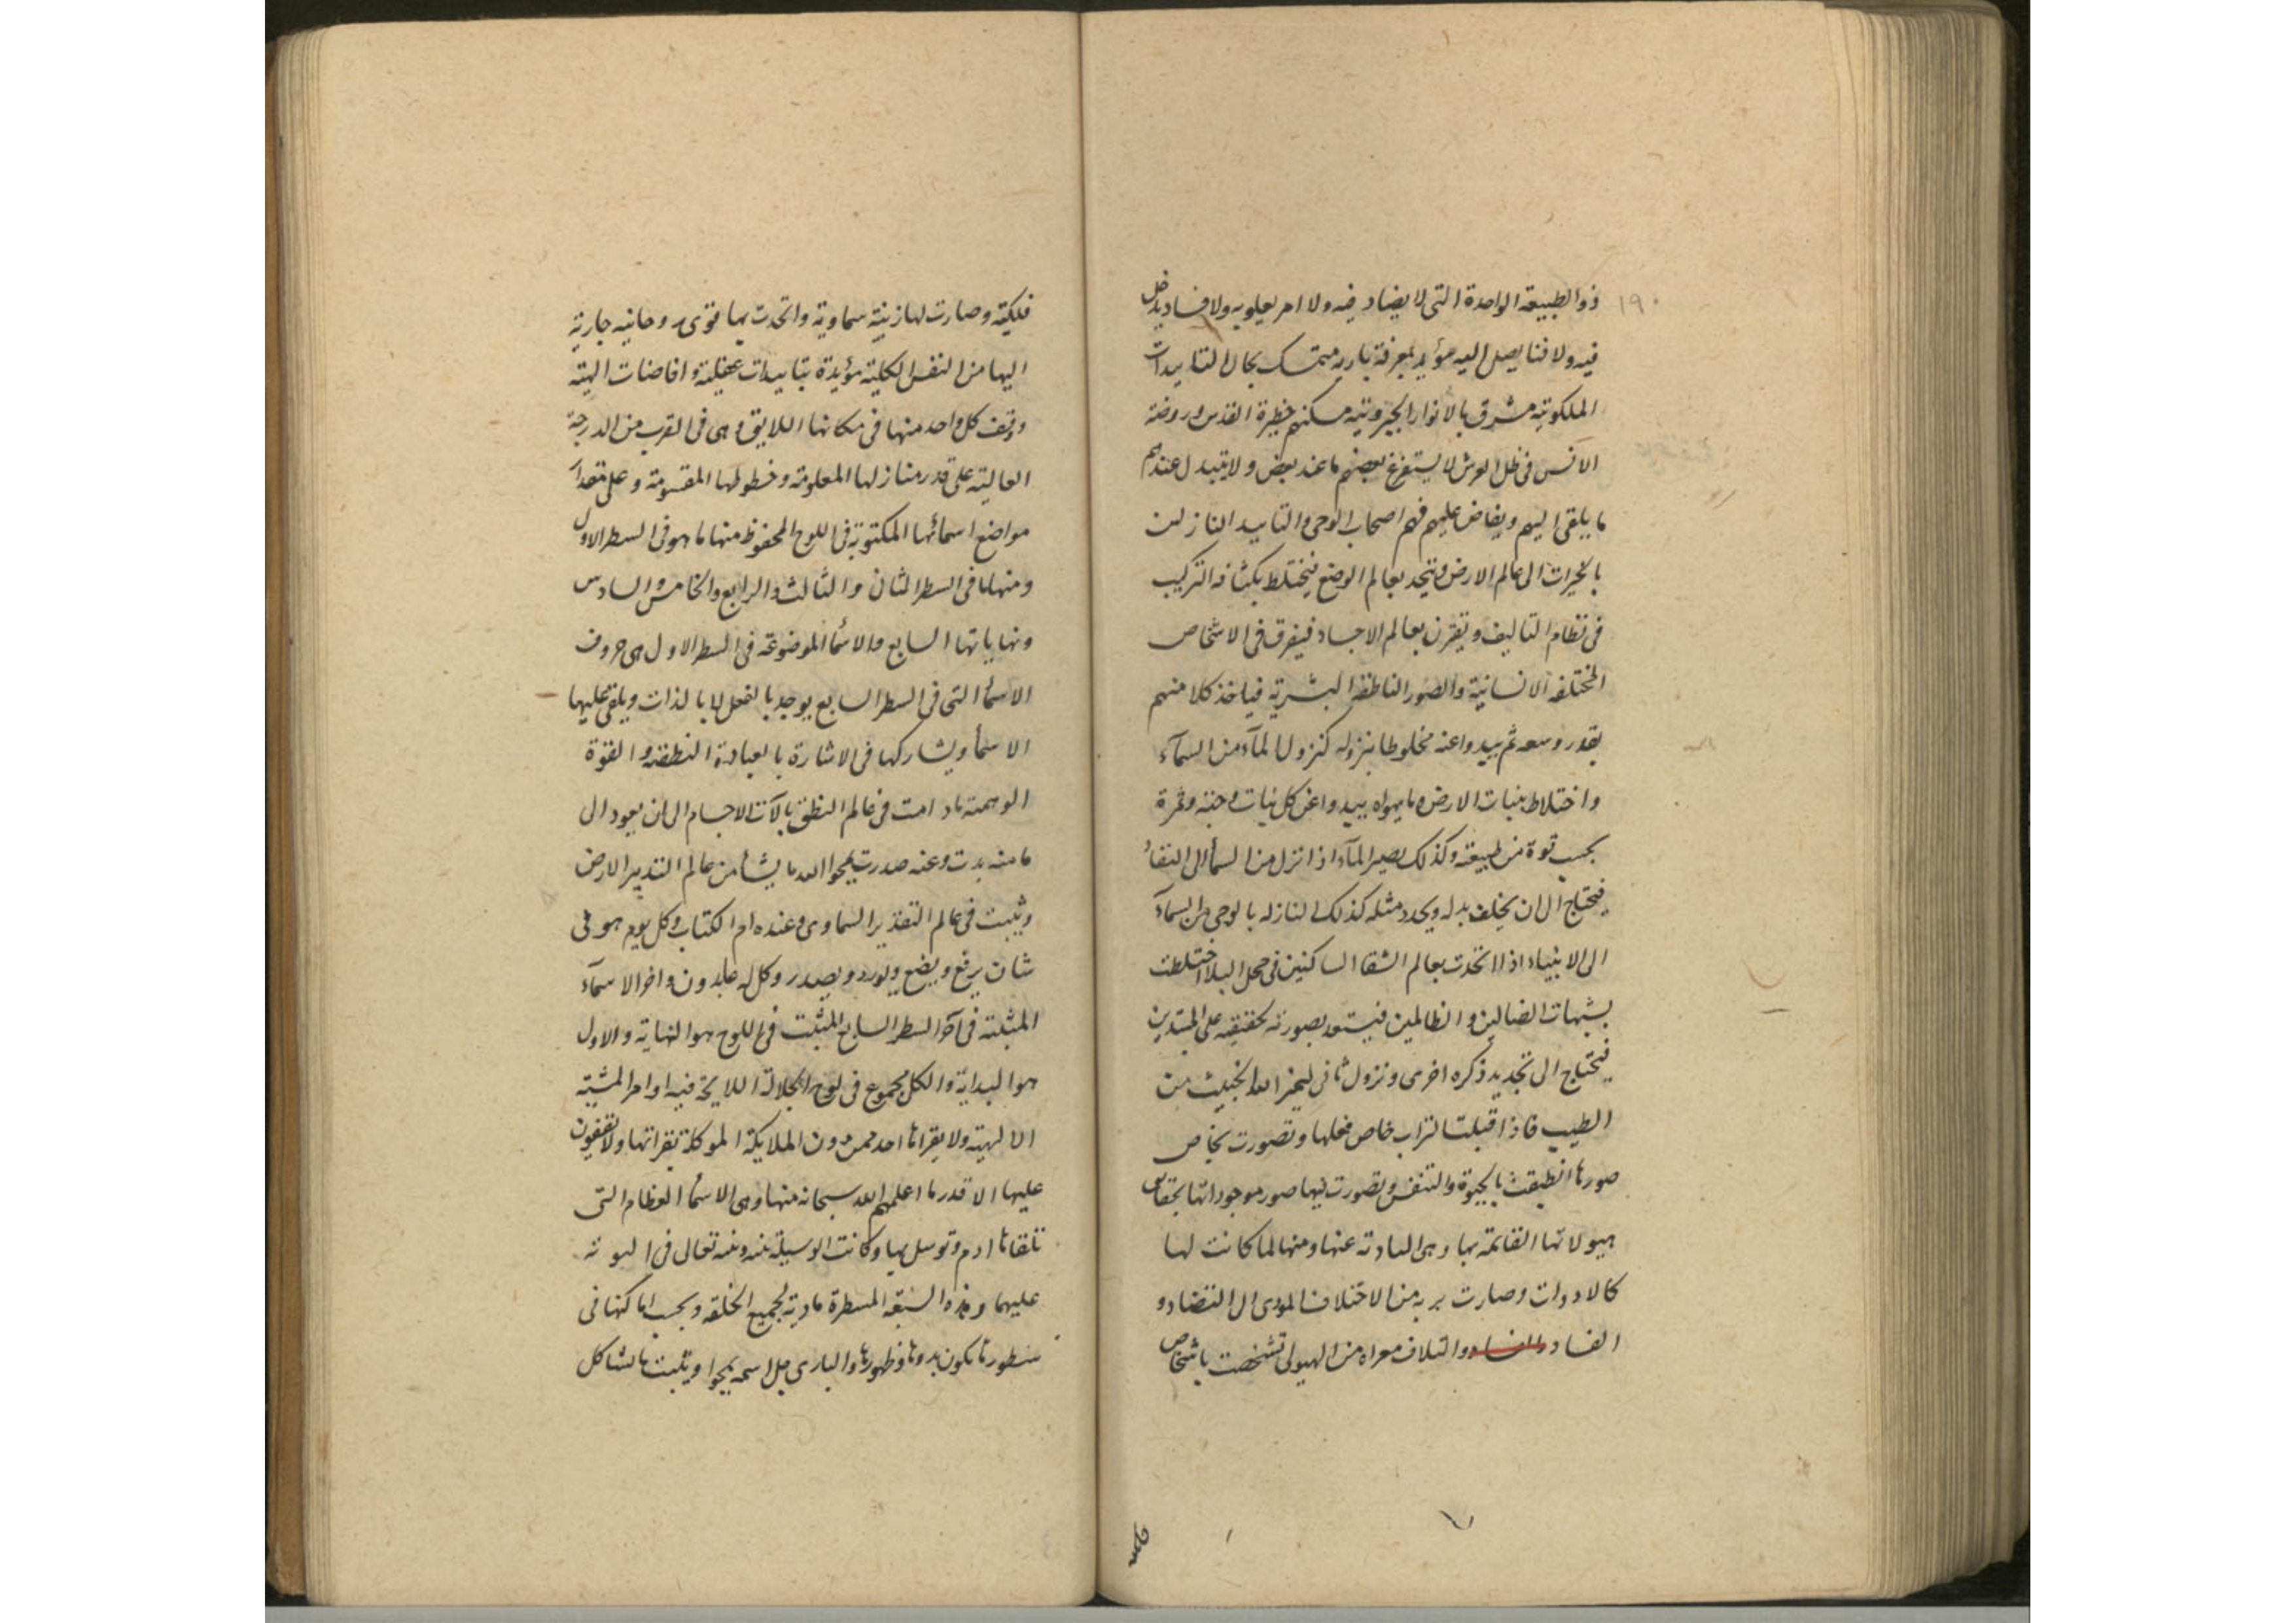 ١٩٠
ذو الطبيعة الواحدة التى لا يضاد فيه ولا امر يعلو به ولا فساد يدخل
فيه ولا فنا يصل اليه مؤيد بمعرفة باريه متمسك بحال التابيدات
الملكوتية مشرق بالانوار الجبروتية مسكنهم حظيرة القدس وروضة
الانس فى ظل العرش لا يستفرغ بعضهم ما عند بعض ولا يتبدل عندهم
ما يلقى اليهم ويفاض عليهم فهم اصحاب الوحى والتاييد النازلين
بالخيرات الى عالم الارض ويتحد بعالم الوضع فيختلط بكثافه التركيب
فى نظام التاليف ويقترن بعالم الاجساد فيفرق فى الاشخاص
المختلفه الانسانية والصور الناطقه البشرية فياخذ كلا منهم
بقدر وسعه ثم يبدوا عنه مخلوطا بنزوله كنزول المآء من السمآء
واختلاط بنبات الارض وما يهواه يبدوا عن كل نبات وحبة وثمرة
بحسب قوة من طبيعته وكذلك يصير المآء اذا نزل من السمأ الى
فيحتاج الى ان يخلف بدله ويجدد مثله كذلك النازله بالوحى من السمآء
الى الانبياء اذا اتحدت بعالم الشقا الساكنين فى محل البلا اختلطت
بشبهات الضالين والظالمين بصورته كحقيقه على المبتدين
فيحتاج الى تجديد ذكره اخرى ونزول ثانى ليميز الله الخبيث من
الطيب فاذا قبلت التراب خاص فعلها وتصورت بخاص
صورها انطبقت بالحيوة والتنفس وتصورت فيها صور موجوداتها
هيولاتها القائمة بها وهى البادئة عنها ومنها لما كانت لها
كالادوات وصارت بريه من الاختلاف المودى الى التضاد و
الفساد والفساد والتلاف معراه من الهيولى تشخصت باشخاص
فلكية وصارت لها زينة سماوية واتحدت بها قوى روحانيه جارية
اليها من النفس الكلية مؤيدة بتاييدات عقلية وافاضات الهية
ووقف كل واحد منها فى مكانها اللايق وهى فى القرب من الدرجة
العالية على قدر منازلها المعلومة وخطوطها المقسومة وعلى مقدار
مواضع اسمائها المكتوبة فى اللوح المحفوظ منها ما هو فى السطر الاول
ومنها ما فى السطر الثانى والثالث والرابع والخامس والسادس
ونهاياتها السابع والاسمأ الموضوعة فى السطر الاول هى حروف
الاسمأ التى فى السطر السابع يوجد بالفعل لا بالذات ويلقى عليها
الاسمأ ويشاركها فى الاشارة بالعبادة النطقية والقوة
الوهمية ما دامت فى عالم النطق بآلات الاجسام الى ان يعود الى
ما منه بدت وعنه صدرت يمحوا الله ما يشأ من عالم التدبير الارضى
ويثبت فى عالم التقدير السماوى وعنده ام الكتاب وكل يوم هو فى
شان يرفع ويضع ويورد ويصدر وكل له عابدون واخر الاسمآء
المثبتة فى آخر السطر السابع المثبت فى اللوح هو النهاية والاول
هو البداية والكل مجموع فى لوح الجلالة اللايحة فيه اوامر المشية
الالهية ولا يقراها احد ممن دون الملايكة الموكلة بقراتها ولا يقفون
عليها الا قدر ما اعلمهم الله سبحانه منها وهى الاسمأ العظام التى
تلقاها ادم وتوسل بها وكانت الوسيلة بينه وبينه تعالى فى التوبة
عليهما وهذه السبعة المسطرة مادية لجميع الخلقه وبحسب اماكنها فى
سطورها يكون بدوها وظهورها والبارى جل اسمه يمحوا ويثبت ما شا كل